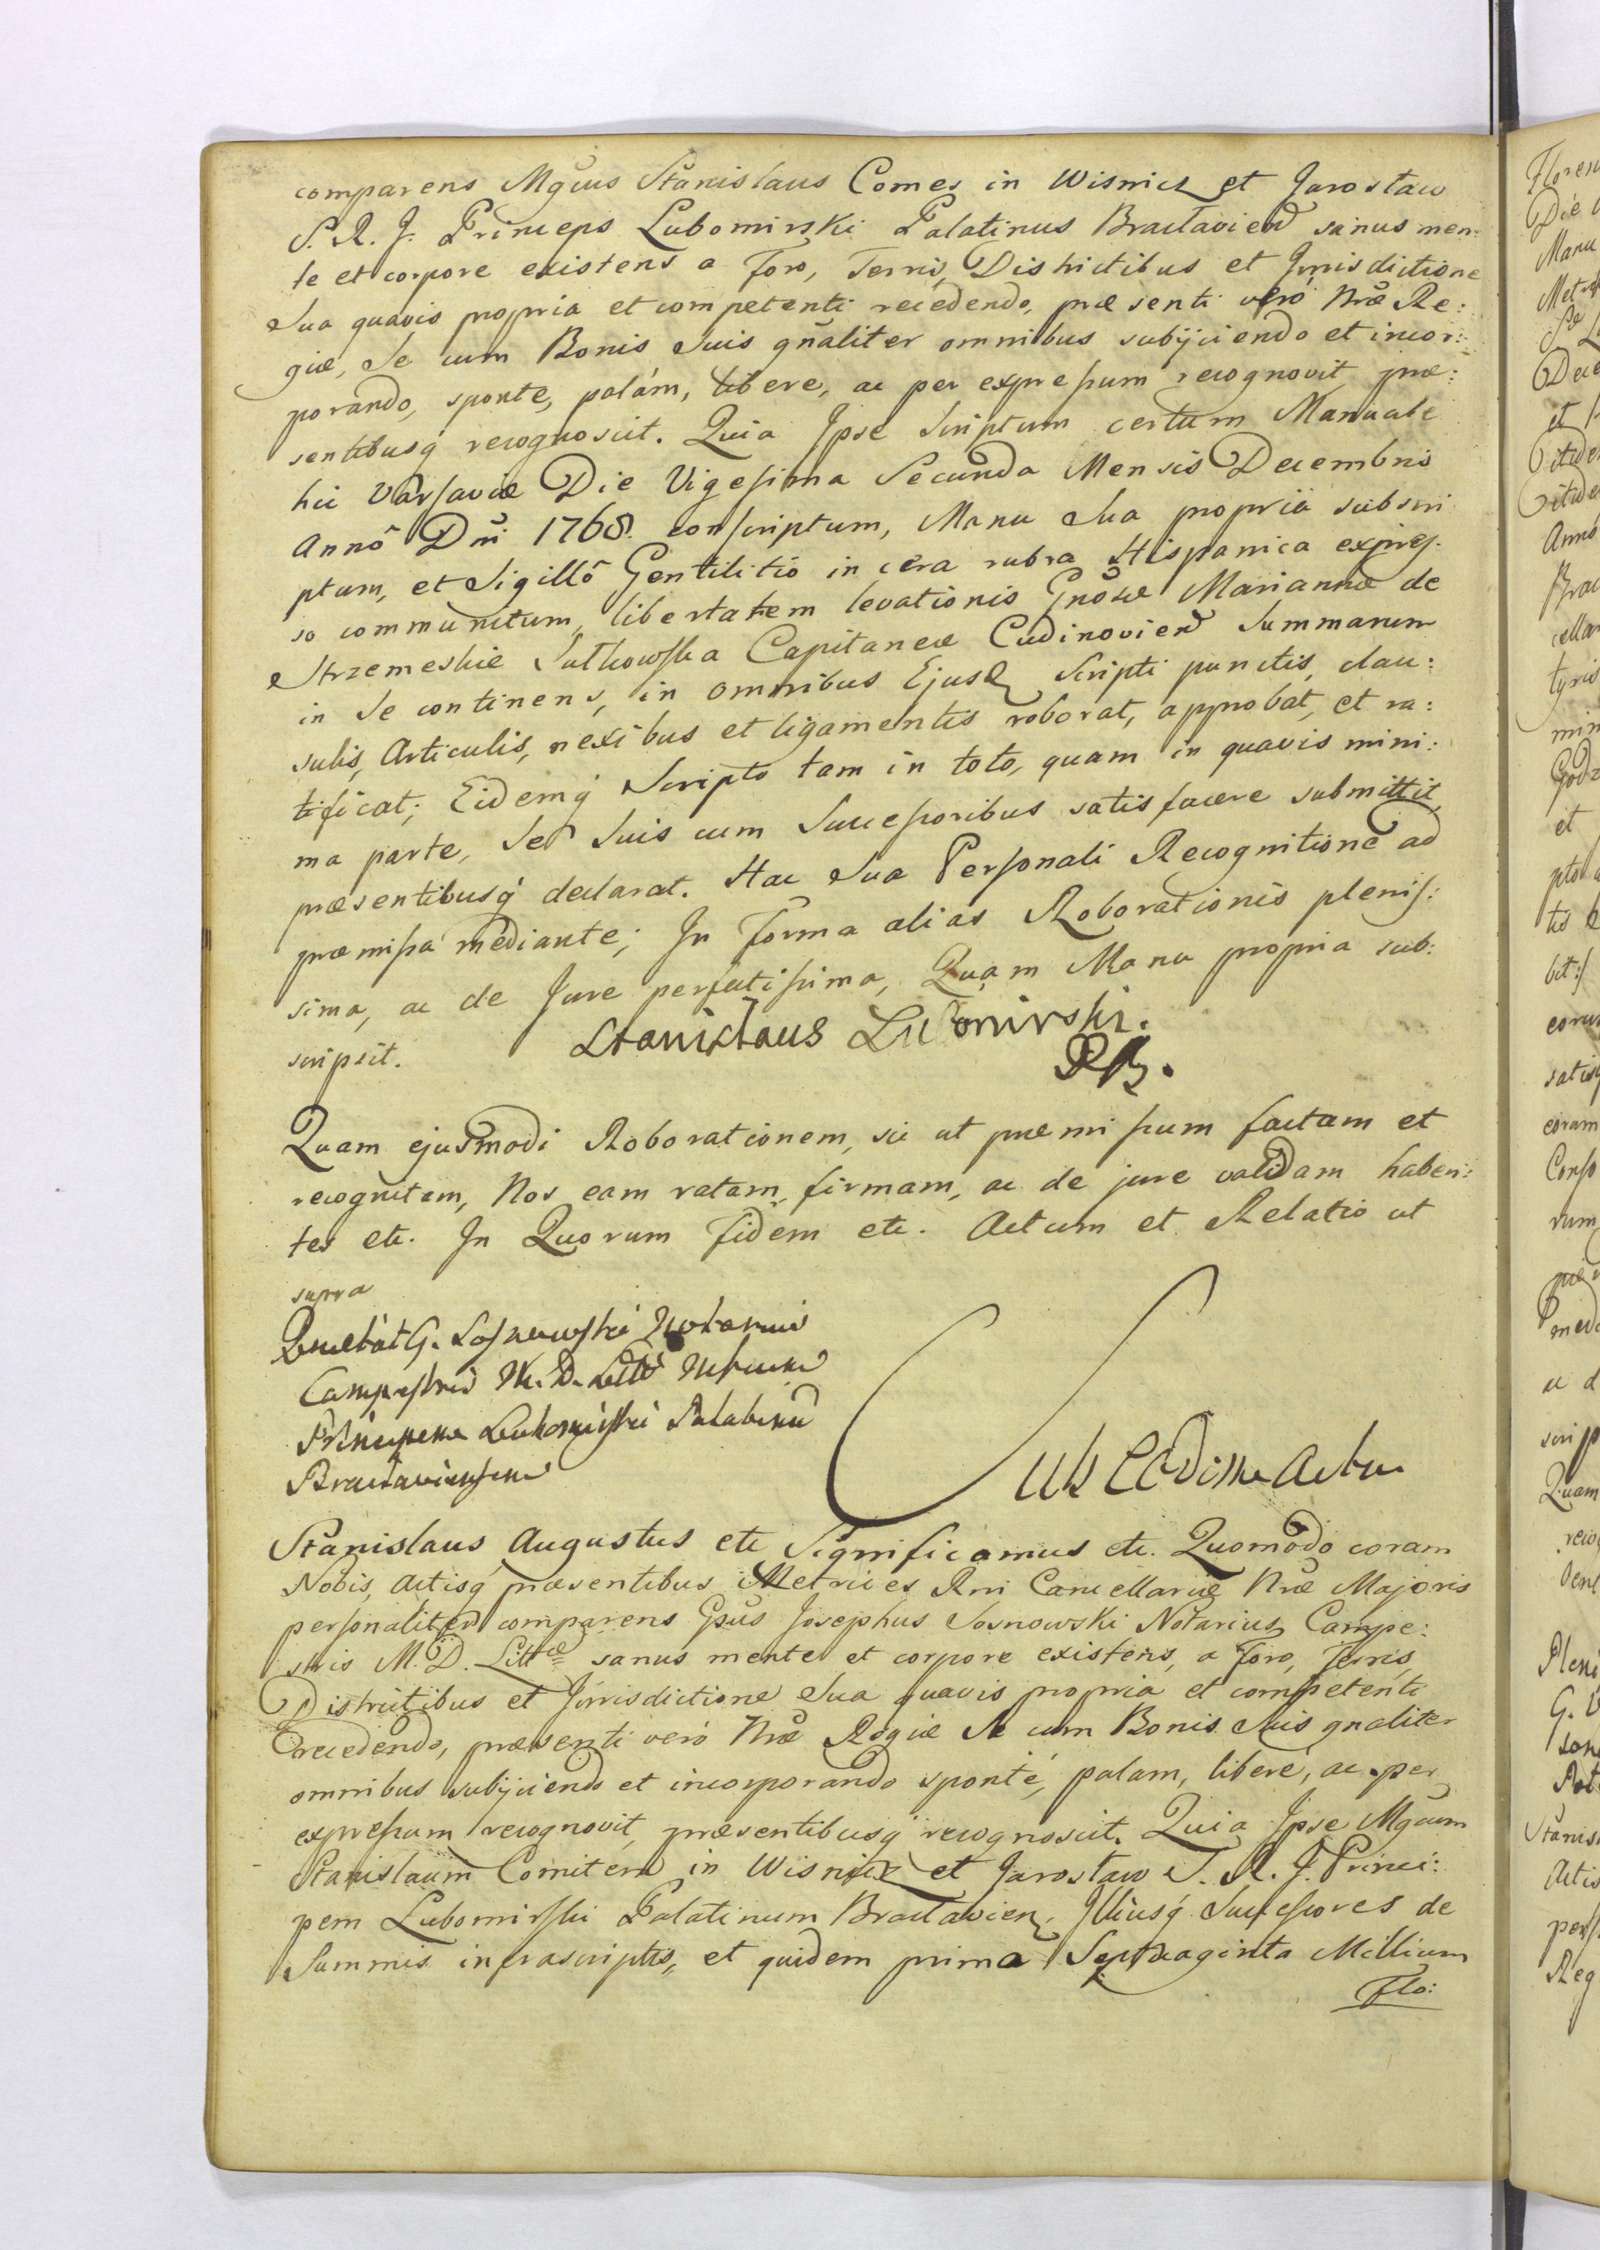 comparens Mgcus Stanislaus Comes in Wisnicz et Jarosław
S. R. J. Princeps Lubomirski Palatinus Braclavien sanus men:
te et corpore existens a Foro, Terris, Districtibus et Jurisdictione
Sua quavis propria et competenti recedendo, præsenti veró Nræ Re:
giæ, Se cum Bonis Suis gnaliter omnibus subijciendo et incor:
porando, sponte, palám, libere, ac per expressum recognovit præ:
sentibusq́ recognoscit. Quia Ipse Scriptum certum Manuale
hic Varsaviæ Die Vigesima Secunda Mensis Decembris
Annô Dni 1768. conscriptum, Manu Sua propria subscri
ptum, et Sigillô Gentilitio in cera rubra Hispanica expres-
so communitum, libertatem levationis Gnosæ Mariannæ de
Strzemeskie Sutkowska Capitaneæ Cudinovien Summarum
in Se continens, in omnibus Ejusd Scripti punctis, clau:
sulis, Articulis, nexibus et ligamentis roborat, approbat, et ra:
tificat; Eidemq́ Scripto tam in toto, quam in quavis mini:
ma parte, Se Suis cum Successoribus satisfacere submittit,
præsentibusq́ declarat. Hac Sua Personali Recognitione ad
præmissa mediante; In Forma alias Roborationis plenis:
sima, ac de Jure perfectissima, Quam Manu propria sub:
scripsit. Stanisłaus Lubomirski.
PB.
Quam ejusmodi Roborationem, sic ut præmissum factam et
recognitam, Nos eam ratam, firmam, ac de jure validam haben:
tes etc. In Quorum fidem etc. Actum et Relatio ut
supra
G. Sosnowski Notarius
Campestris M. D. Litt
Principem Lubomirski Palatinum
Braclaviensem
Sub Eodem Actu
Stanislaus Augustus etc Significamus etc. Quomodo coram
Nobis, Actisq́ præsentibus Metrices Rni Cancellariæ Nræ Majoris
personaliter comparens Gsus Josephus Sosnowski Notarius Campe:
stris M. D. Littæ sanus mente et corpore existens, a Foro, Terris,
Districtibus et Jurisdictione Sua quavis propria et competenti
recedendo, præsenti veró Nræ Regiæ Se cum Bonis Suis gnaliter
omnibus subijciendo et incorporando sponté, palam, liberé, ac per
expressum recognovit, præsentibusq́ recognoscit. Quia Ipse Mgcum
Stanislaum Comitem in Wisnicz et Jarosław S. R. J. Princi:
pem Lubomirski Palatinum Braclavien, Illiusq́ Successores de
Summis infrascriptis, et quidem prima Septuaginta Millium
Flo: